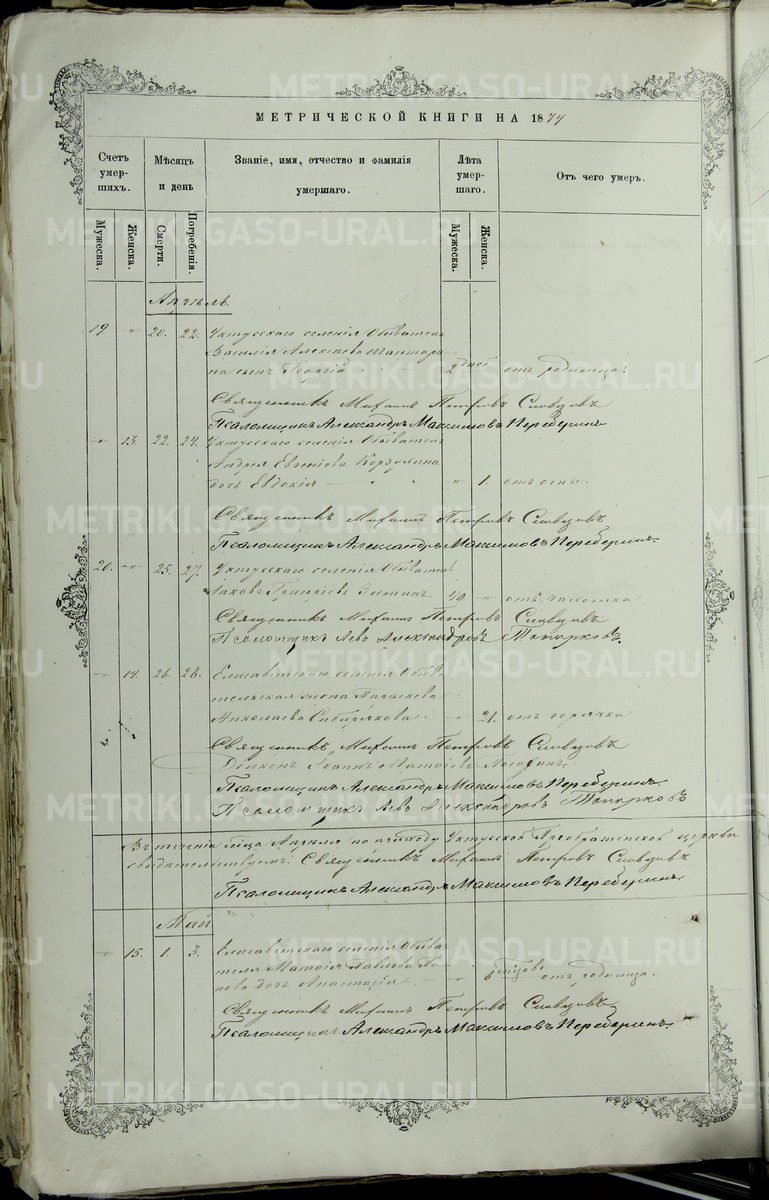 МЕТРИЧЕСКОЙ КНИГИ НА 1874
Счетъ умершихъ.
Мѣсяцъ и день
Званіе, имя, отчество и фамилія умершаго.
Лѣта умершаго.
Отъ чего умеръ.
Мужеска.
Женска.
Смерти.
Погребенія.
Мужеска.
Женска.
Апрѣль
19 „ 20. 22. Уктусскаго селенія Обывателя
Василія Алексѣева
на сынъ Георгій 2 дней отъ родимца.
Священникъ Михаилъ Петровъ Словцовъ
Псаломщикъ Александръ Максимовъ Переберинъ
13. 22. 24. Уктусскаго селенія Обывателя
Андрея Евгеніева
дочь Евдокія „ 1. отъ оспы.
Священникъ Михаилъ Петровъ Словцовъ
Псаломщикъ Александръ Максимовъ Переберинъ.
20. 25. 27. Уктусскаго селенія Обыватель
Яковъ Григорьевъ 40 отъ чахотки
Священникъ Михаилъ Петровъ Словцовъ
Псаломщикъ Левъ Александровъ Топорковъ.
14. 26. 28. Елисаветскаго селенія Обыва-
тельская жена Параскева
Николаева Сибирякова 21. отъ горячки
Священникъ Михаилъ Петровъ Словцовъ
Діаконъ Іоаннъ
Псаломщикъ Александръ Максимовъ Переберинъ.
Псаломщикъ Левъ Александровъ Топорковъ
Въ теченіи м-ца Апрѣля по приходу Уктусской Преображенской церкви
свидѣтельствуемъ: Священникъ Михаилъ Петровъ Словцовъ
Псаломщикъ Александръ Максимовъ Переберинъ.
Май
15. 1. 3. Елисаветскаго селенія Обыва-
теля Матвія Павлова По-
пова дочь Анастасія 6 мѣсяцовъ отъ родимца.
Священникъ Михаилъ Петровъ Словцовъ
Псаломщикъ Александръ Максимовъ Переберинъ.
METRIKI.GASO-URAL.RU